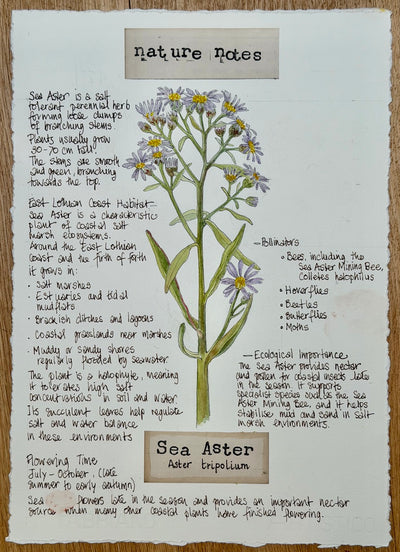 nature notes
Sea Aster is a salt
tolerant perennial herb
forming loose clumps
of branching stems.
Plants usually grow
30-70 cm tall
The stems are smooth
and green, branching
towards the top.
East Lothian Coast Habitat-
Sea Aster is a characteristic
plant of coastal salt
marsh ecosystems.
Around the East Lothian
coast and the firth of forth
it grows in:
· Salt marshes
· Estuaries and tidal
mudflats
· Brackish ditches and lagoons
· Coastal grasslands near marshes
· Muddy or sandy shores
regularly flooded by seawater.
The plant is a halophyte, meaning
it tolerates high salt
concentrations in soil and water.
Its succulent leaves help regulate
salt and water balance
in these environments
Flowering Time
July - October. (late
summer to early autumn)
Sea flowers late in the season and provides an important nectar
source when many other coastal plants have finished flowering.
- Pollinators
· Bees, including the
Sea Aster Mining Bee,
Colletes halophilus
· Hoverflies
· Beetles
· Butterflies
· Moths
- Ecological Importance
The Sea Aster provides nectar
and pollen for coastal insects late
in the season. It supports
specialist species such as the Sea
Aster Mining Bee, and it helps
stabilise mud and sand in salt
marsh environments.
Sea Aster
Aster tripolium